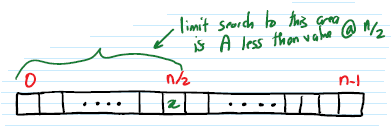 limit search to this area
is A less than value @ n/2
0 n/2 n-1
.... x ....